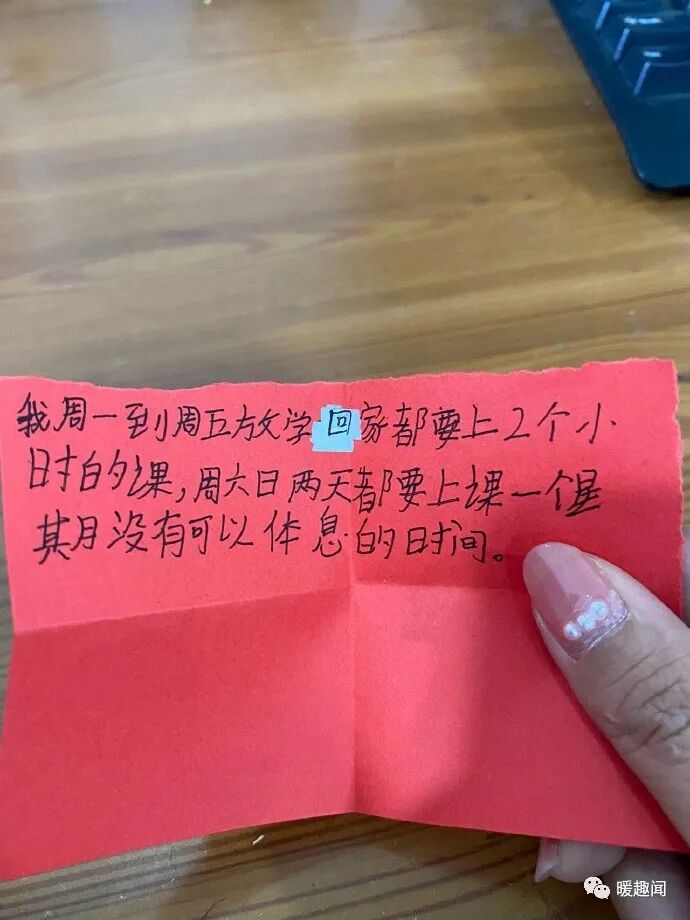 我周一到周五放学回家都要上2个小
时的课,周六日两天都要上课一个星
期没有可以体息的时间。
暖趣闻